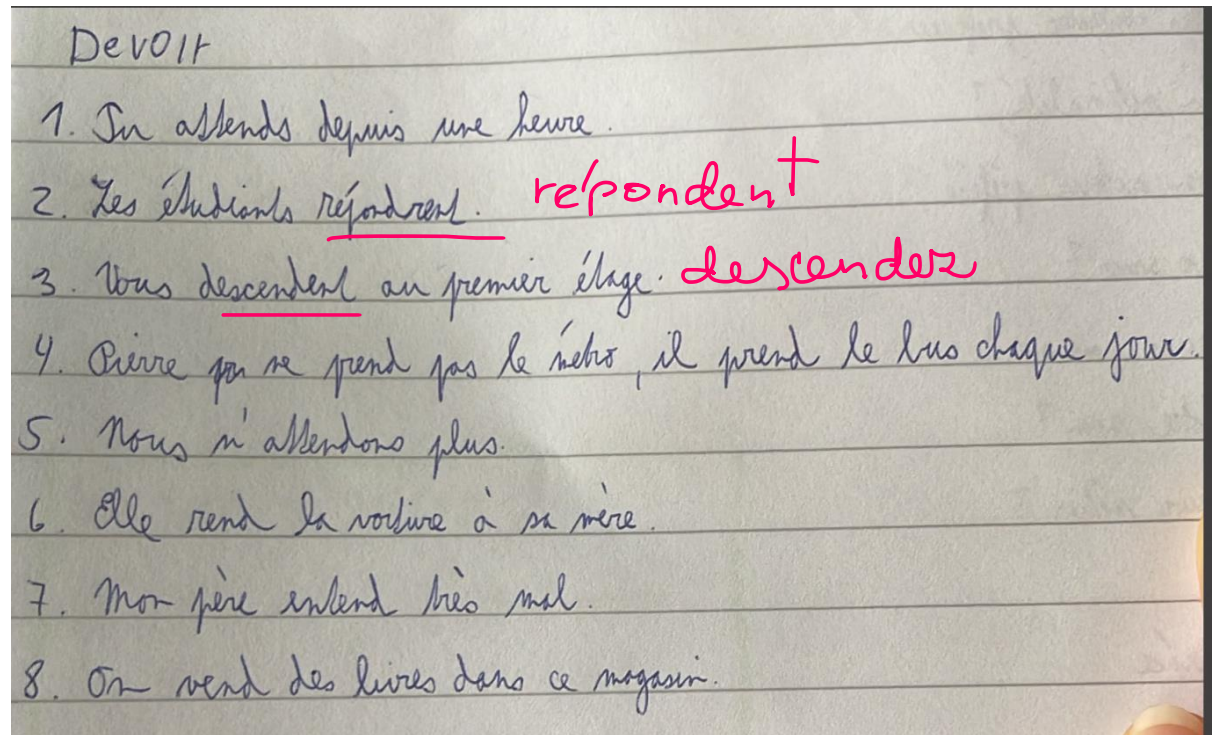 Devoir
1. Tu attends depuis une heure.
2. Les étudiants répondrent. répondent
3. Vous descendent au premier étage. descendez
4. Pierre ne prend pas le métro, il prend le bus chaque jour.
5. Nous n'attendons plus.
6. Elle rend la voiture à sa mère.
7. Mon père entend très mal.
8. On vend des livres dans ce magasin.